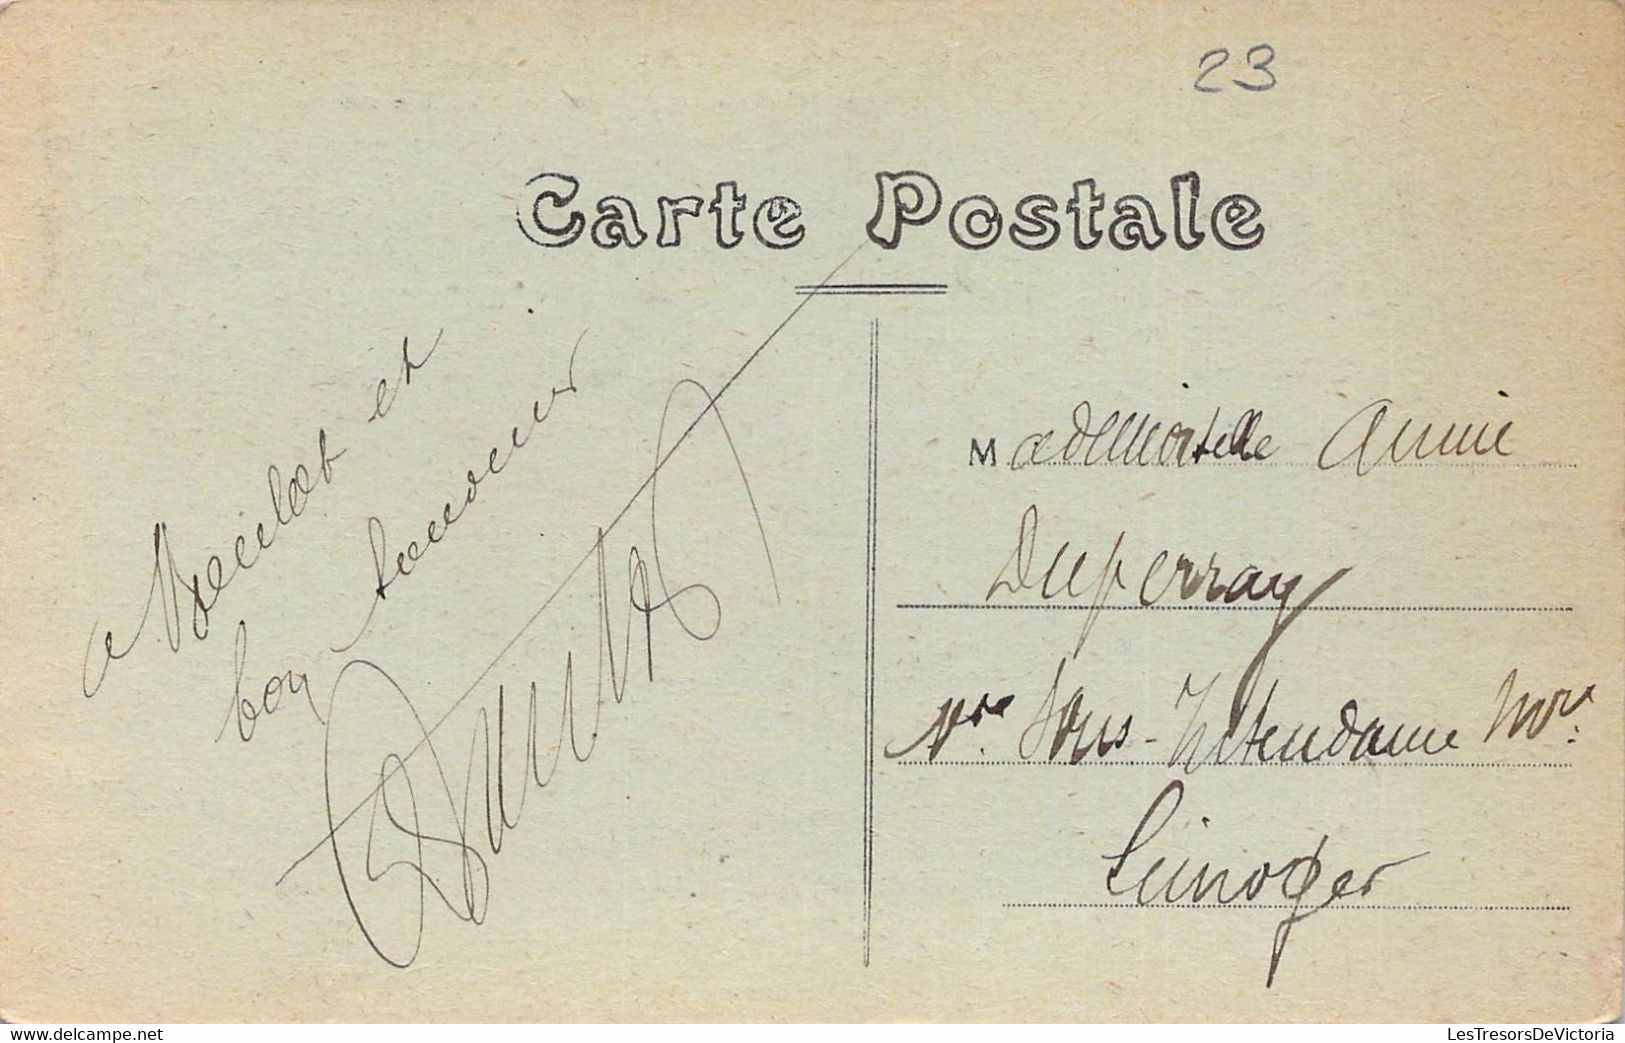 23
Carte Postale
a Bientot et
bon souvenir
Mademoiselle Annie
Duperray
Sous-Intendance
Limoges
delcampe.net
LesTresorsDeVictoria